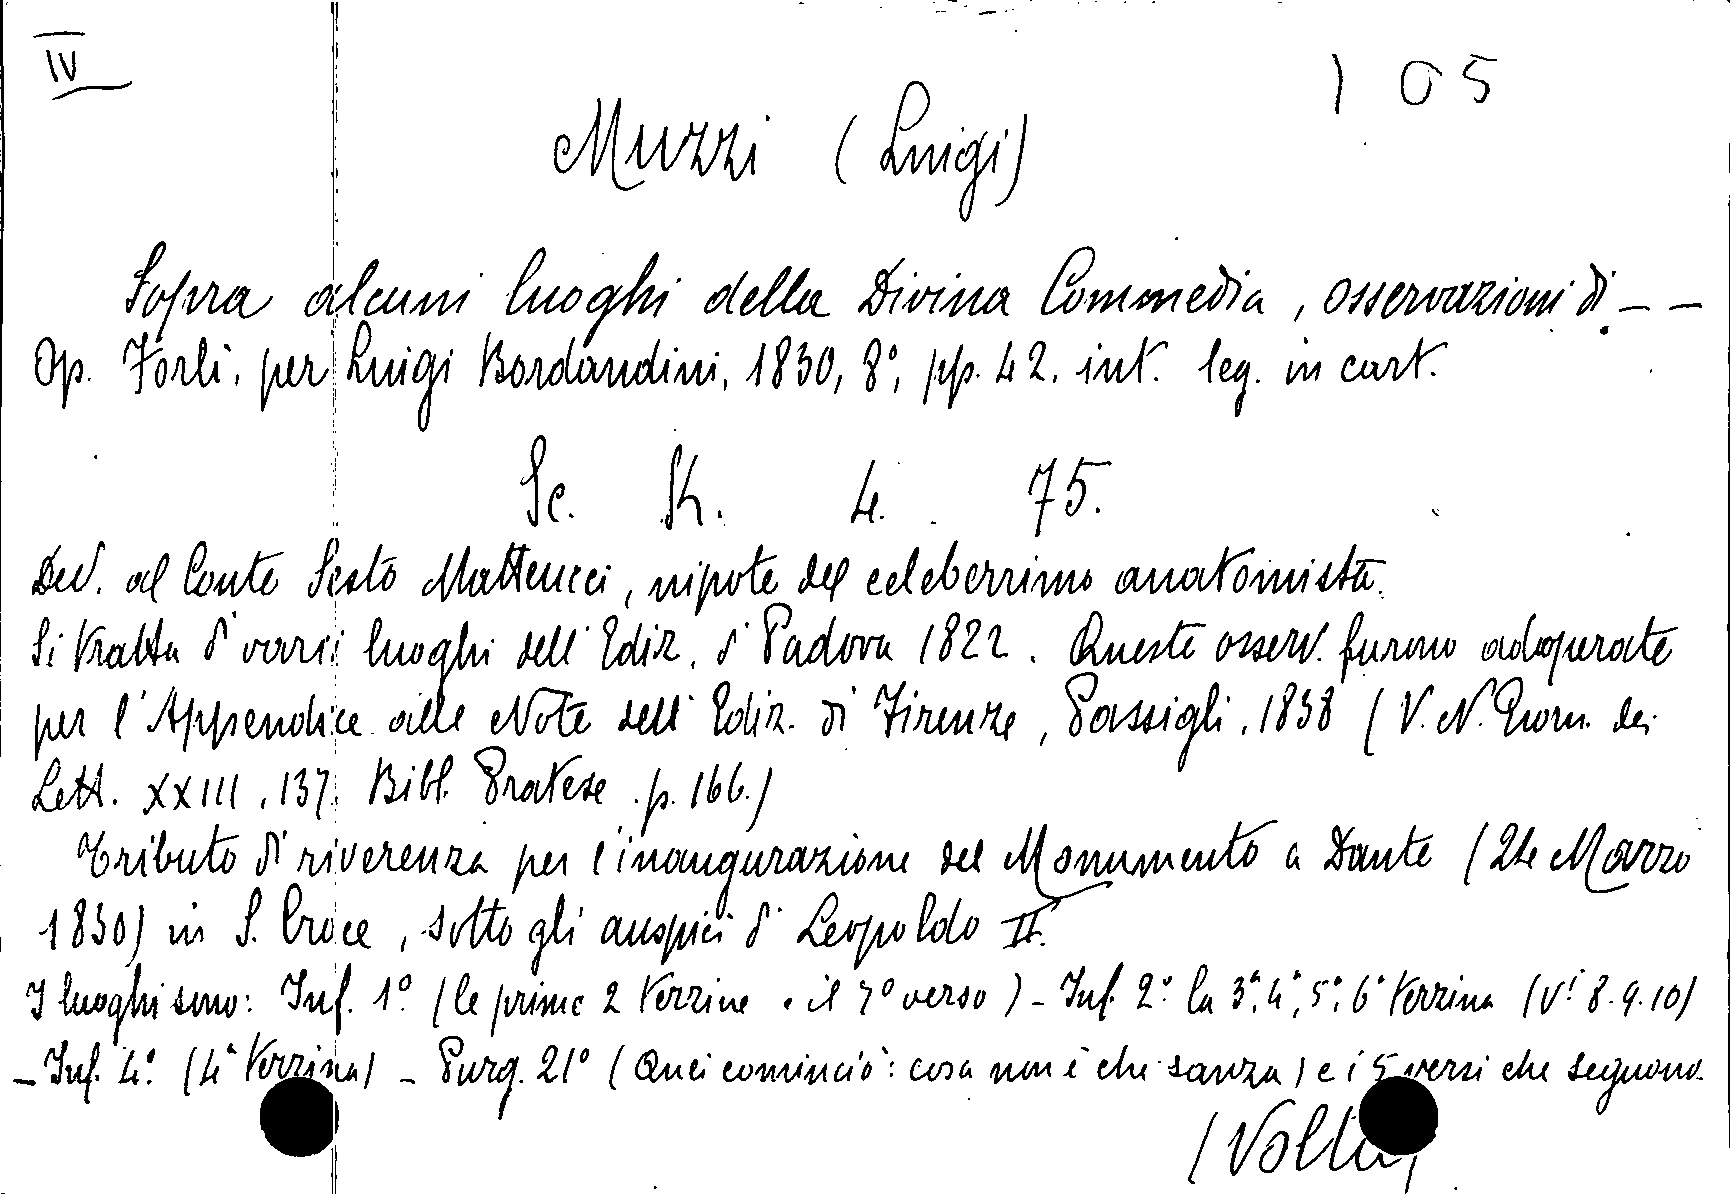 IV
105
Muzzi (Luigi)
Sopra alcuni luoghi della Divina Commedia, osservazioni di - -
Op. Forlì, per Luigi Bordandini, 1830, 8°, pp. 42. int. leg. in cart.
Sc. K. 4. 75.
Ded. al Conte Sesto Matteucci, nipote del celeberrimo anatomista.
Si tratta di varii luoghi dell'Ediz. di Padova 1822. Queste osserv. furono adoperate
per l'Appendice alle Note dell'Ediz. di Firenze, Passigli, 1838 (V. N. Giorn. dei
Lett. XXIII, 137. Bibl. Pratese. p. 166.)
Tributo di riverenza per l'inaugurazione del Monumento a Dante (24 Marzo
1830) in S. Croce, sotto gli auspici di Leopoldo II.
I luoghi sono: Inf. 1° (le prime 2 terzine e il 7° verso) - Inf. 2° la 3ª, 4ª, 5ª, 6ª terzina (vi 8.9.10)
- Inf. 4° (4ª terzina) - Purg. 21° (Quei cominciò: cosa non è che sanza) e i 5 versi che seguono.
(Volta)